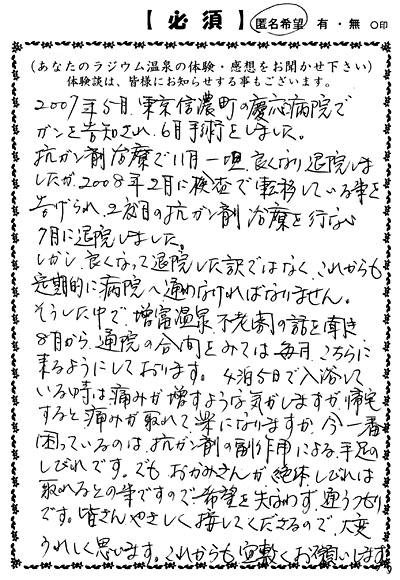 【必須】 匿名希望 有・無 ○印
(あなたのラジウム温泉の体験・感想をお聞かせ下さい)
体験談は、皆様にお知らせする事もございます。
2007年5月、東京信濃町の慶応病院で
ガンを告知され、6月手術をしました。
抗ガン剤治療で11月一旦、良くなり退院しま
したが、2008年2月に検査で転移している事を
告げられ、2度目の抗ガン剤治療を行ない
7月に退院しました。
しかし、良くなって退院した訳ではなく、これからも
定期的に病院へ通わなければなりません。
そうした中で、増富温泉 不老閣の話を聞き
8月から、通院の合間をみては毎月、こちらに
来るようにしております。4泊5日で入浴して
いる時は、痛みが増すような気がしますが、帰宅
すると痛みが取れて、楽になりますが、今一番
困っているのは、抗ガン剤の副作用による、手足の
しびれです。でも、おかみさんが、絶対、しびれは
取れるとの事ですので、希望を失わず、通うつもり
です。皆さんやさしく、接してくださるので、大変
うれしく思います。これからも、宜敷くお願いします。